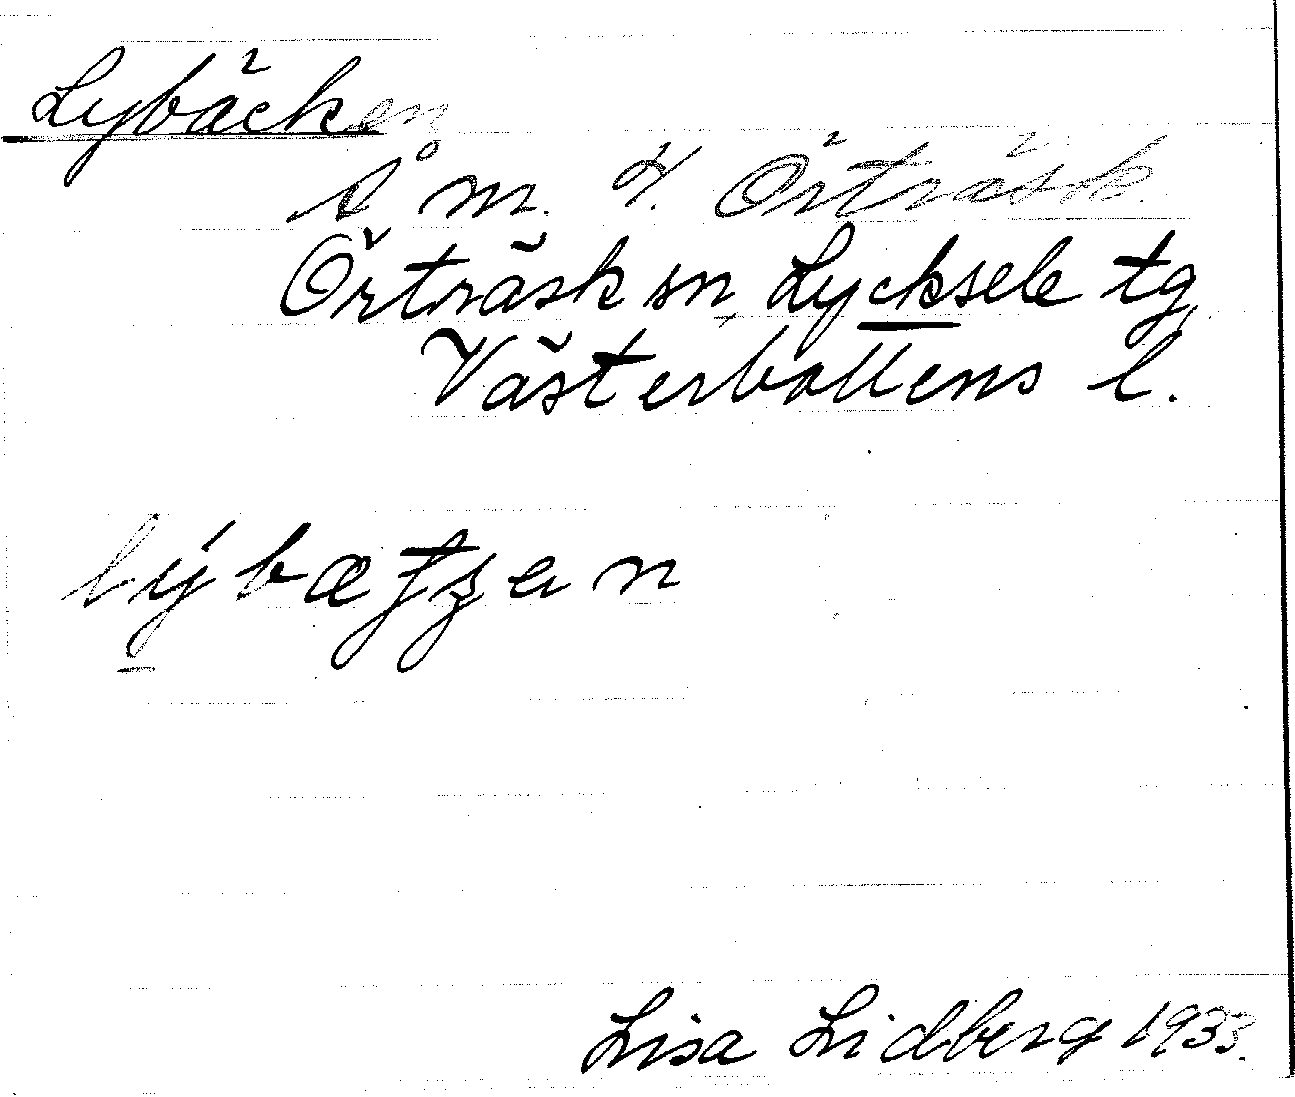 Lybäcken
Å m. V. Örträsk.
Örträsk sn, Lycksele tg,
Västerbottens l.
Lisa Lidberg 1933.